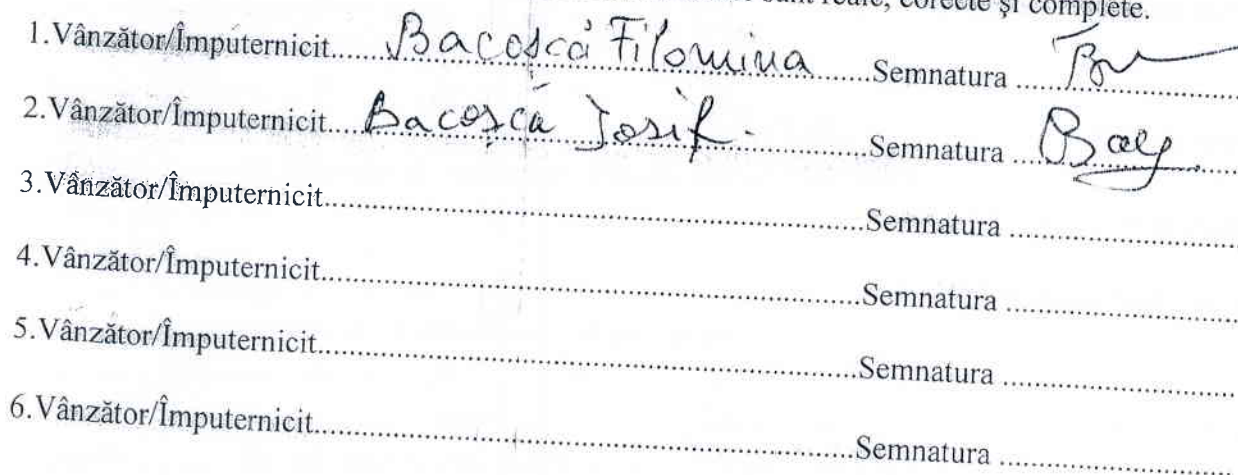 sunt reale, corecte și complete.
1.Vânzător/Împuternicit.....Bacoșcă Filomina.....Semnatura .....
2.Vânzător/Împuternicit.....Bacoșcă Iosif.....Semnatura .....
3.Vânzător/Împuternicit.....Semnatura .....
4.Vânzător/Împuternicit.....Semnatura .....
5.Vânzător/Împuternicit.....Semnatura .....
6.Vânzător/Împuternicit.....Semnatura .....